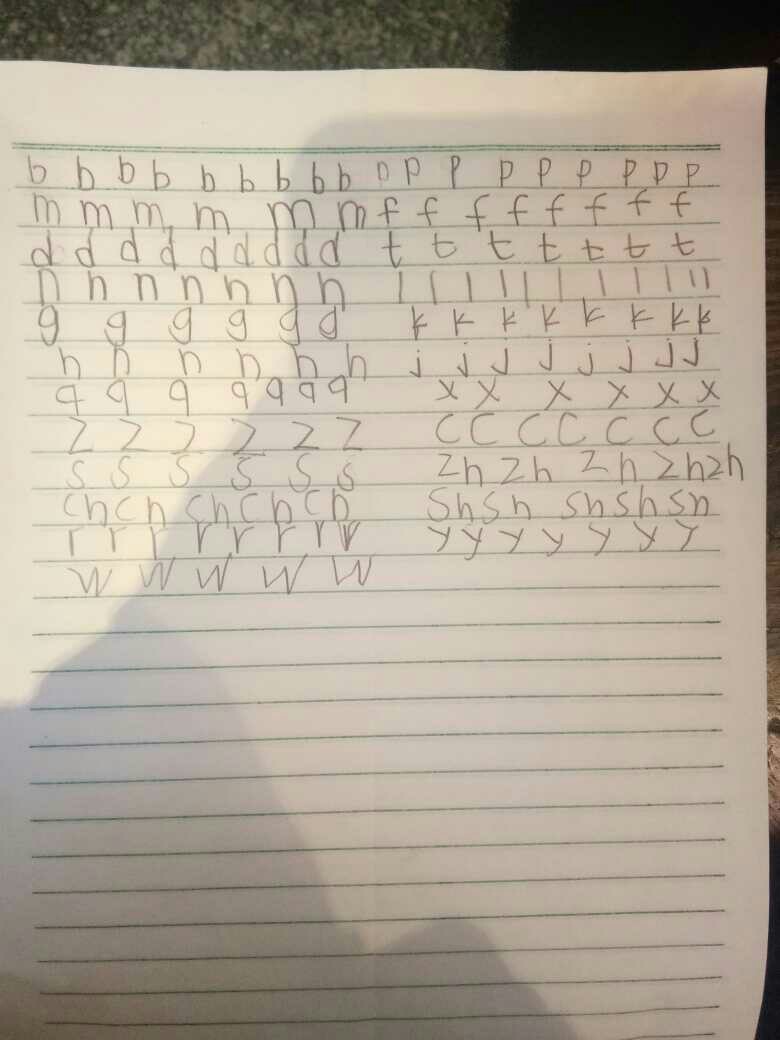 b b b b b b b b b p p p p p p p p p
m m m m m m f f f f f f f f
d d d d d d d d d t t t t t t t
n n n n n n n l l l l l l l l l l l
g g g g g g k k k k k k k k
h h h h h h j j j j j j j j
q q q q q q q x x x x x x
z z z z z z c c c c c c c
s s s s s s zh zh zh zh zh
ch ch ch ch ch sh sh sh sh sh
r r r r r r r r y y y y y y y
w w w w w